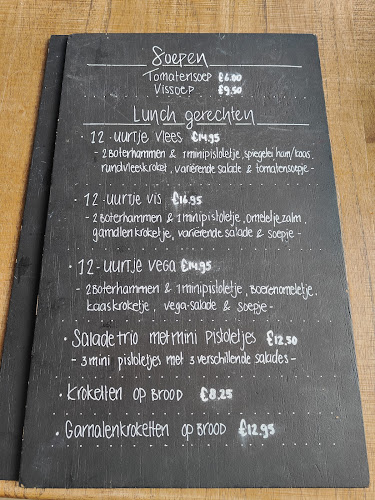 Soepen
Tomatensoep €6.00
Vissoep €9,50
Lunch gerechten
• 12-uurtje vlees €14,95
- 2 Boterhammen & 1 minipistoletje, spiegelei ham/kaas,
rundvleeskroket, variërende salade & tomatensoepje -
• 12-uurtje vis €16,95
- 2 Boterhammen & 1 minipistoletje, omeletje zalm,
garnalenkroketje, variërende salade & soepje -
• 12-uurtje vega €14,95
- 2 Boterhammen & 1 minipistoletje, Boerenomeletje,
kaaskroketje, vega-salade & soepje -
• Salade trio met mini pistoletjes €12,50
- 3 mini pistoletjes met 3 verschillende salades -
• Kroketten op brood €8,25
• Garnalenkroketten op brood €12,95